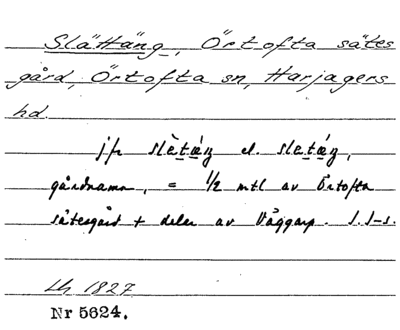 Slättäng, Örtofta sätes
gård, Örtofta sn, Harjagers
hd.
jfr slètæ̀ŋ el. sletǽŋ,
gårdnamn, = 1/2 mtl av Örtofta
sätesgård + delar av Väggarp.
Lh 1827
Nr 5624.